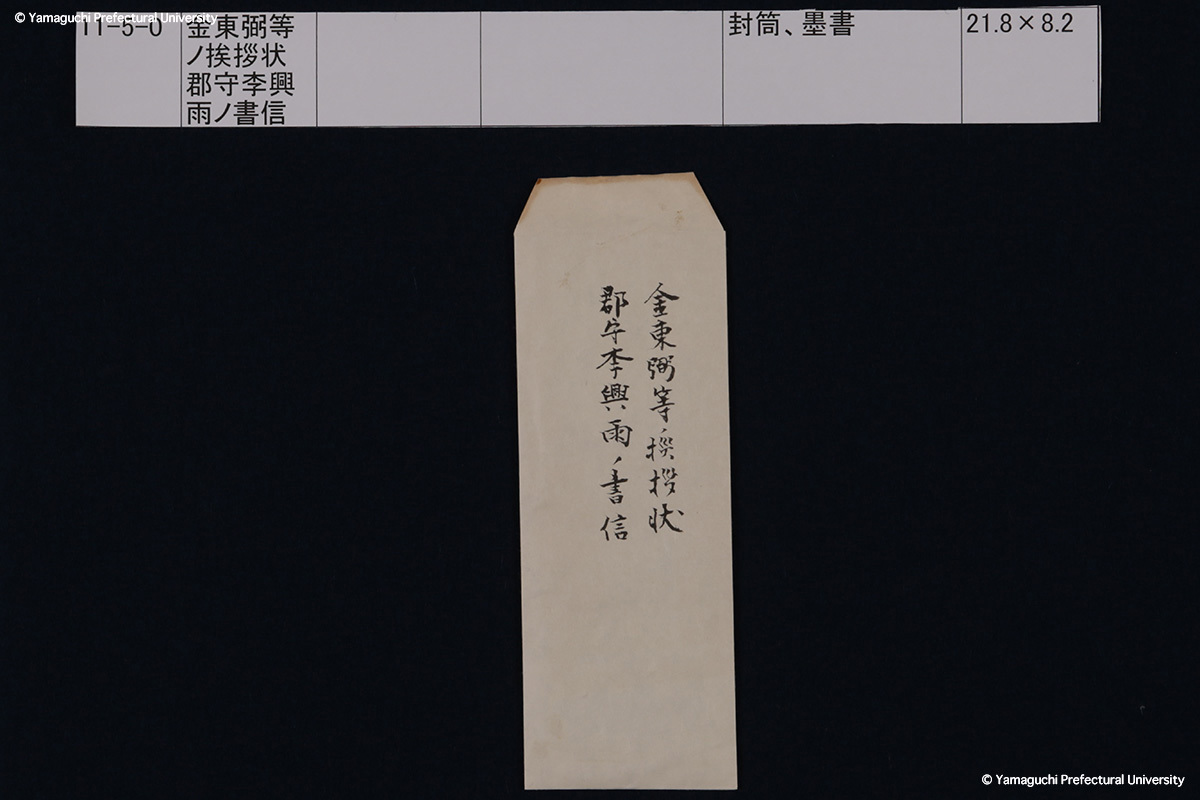 © Yamaguchi Prefectural University
11-5-0
金東弼等
ノ挨拶状
郡守李興
雨ノ書信
封筒、墨書
21.8×8.2
金東弼等ノ挨拶状
郡守李興雨ノ書信
© Yamaguchi Prefectural University